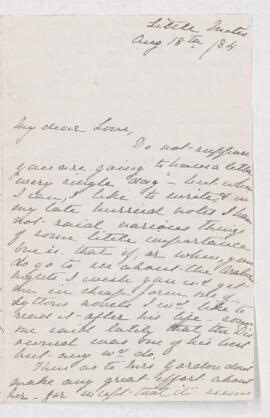 Little
Aug 18th /84
My dear Love,
Do not suppose
you are going to have a letter
every single day - but when
I can, I like to write & in
my late hurried notes I have
not said various things
of some little importance
one is that if, or when, you
do go to see about the
nights I wish you wd get
me in cheap form one of
Lyttons novels I wd like to
read it after his life -
me said lately that the
was one of his best
but any wd do.
Then as to Mrs Gordon dont
make any great effort about
her - for except that it